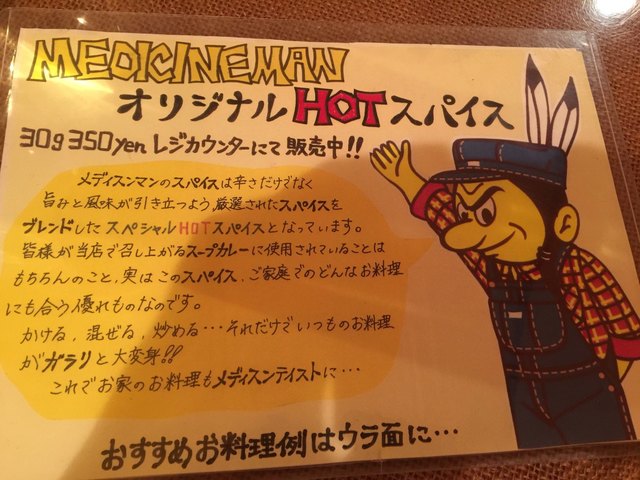 MEDICINEMAN
オリジナルHOTスパイス
30g 350yen レジカウンターにて販売中!!
メディスンマンのスパイスは辛さだけでなく
旨みと風味が引き立つよう厳選されたスパイスを
ブレンドしたスペシャルHOTスパイスとなっています。
皆様が当店で召し上がるスープカレーに使用されていることは
もちろんのこと、実はこのスパイス、ご家庭でのどんなお料理
にも合う優れものなのです。
かける、混ぜる、炒める…それだけでいつものお料理
がガラリと大変身!!
これでお家のお料理もメディスンテイストに…
おすすめお料理例はウラ面に…